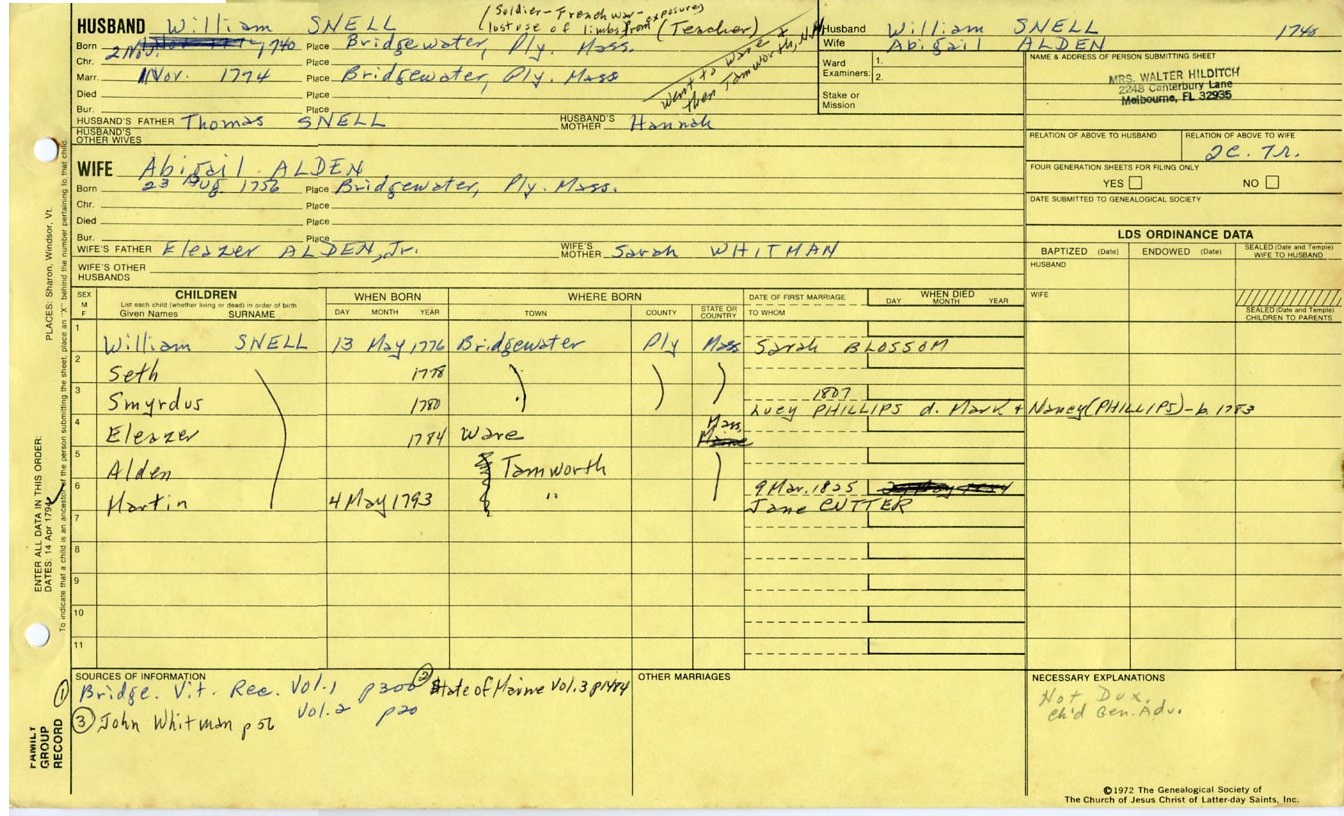 HUSBAND William SNELL (Soldier-French war-exposures
lost use of limbs from (Teacher)
Born 2 Nov. 1740 Place Bridgewater, Ply. Mass.
Chr. Place
Marr. Nov. 1774 Place Bridgewater, Ply. Mass
went to Ware &
then Tamworth, N.H.
Died Place
Bur. Place
HUSBAND'S FATHER Thomas SNELL HUSBAND'S MOTHER Hannah
HUSBAND'S OTHER WIVES
Husband William SNELL 1740
Wife Abigail ALDEN
Ward Examiners: 1.
2.
Stake or Mission
NAME & ADDRESS OF PERSON SUBMITTING SHEET
MRS. WALTER HILDITCH
2248 Canterbury Lane
Melbourne, FL 32935
RELATION OF ABOVE TO HUSBAND RELATION OF ABOVE TO WIFE
2C. 7r.
FOUR GENERATION SHEETS FOR FILING ONLY
YES NO
DATE SUBMITTED TO GENEALOGICAL SOCIETY
WIFE Abigail ALDEN
Born 23 Aug. 1756 Place Bridgewater, Ply. Mass.
Chr. Place
Died Place
Bur. Place
WIFE'S FATHER Eleazer ALDEN, Jr. WIFE'S MOTHER Sarah WHITMAN
WIFE'S OTHER HUSBANDS
LDS ORDINANCE DATA
BAPTIZED (Date) ENDOWED (Date) SEALED (Date and Temple) WIFE TO HUSBAND
HUSBAND
WIFE
SEALED (Date and Temple) CHILDREN TO PARENTS
SEX M F CHILDREN WHEN BORN WHERE BORN DATE OF FIRST MARRIAGE WHEN DIED
List each child (whether living or dead) in order of birth
Given Names SURNAME DAY MONTH YEAR TOWN COUNTY STATE OR COUNTRY TO WHOM DAY MONTH YEAR
1 William SNELL 13 May 1776 Bridgewater Ply Mass Sarah BLOSSOM
2 Seth 1778
3 Smyrdus 1780 1807
Lucy PHILLIPS d. Mark & Nancy (PHILLIPS) - b. 1783
4 Eleazer 1784 Ware Mass.
Maine
5 Alden Tamworth
6 Martin 4 May 1793 " 9 Mar. 1825
Jane CUTTER
7
8
9
10
11
SOURCES OF INFORMATION
① Bridge. Vit. Rec. Vol. 1 p300 ② State of Maine Vol. 3 p1484
Vol. 2 p20
③ John Whitman p 56
OTHER MARRIAGES
NECESSARY EXPLANATIONS
Not Dux.
Ch'd Gen. Adv.
©1972 The Genealogical Society of
The Church of Jesus Christ of Latter-day Saints, Inc.
FAMILY
GROUP
RECORD
ENTER ALL DATA IN THIS ORDER:
DATES: 14 Apr 1794
PLACES: Sharon, Windsor, Vt.
To indicate that a child is an ancestor of the person submitting the sheet, place an "X" behind the number pertaining to that child.